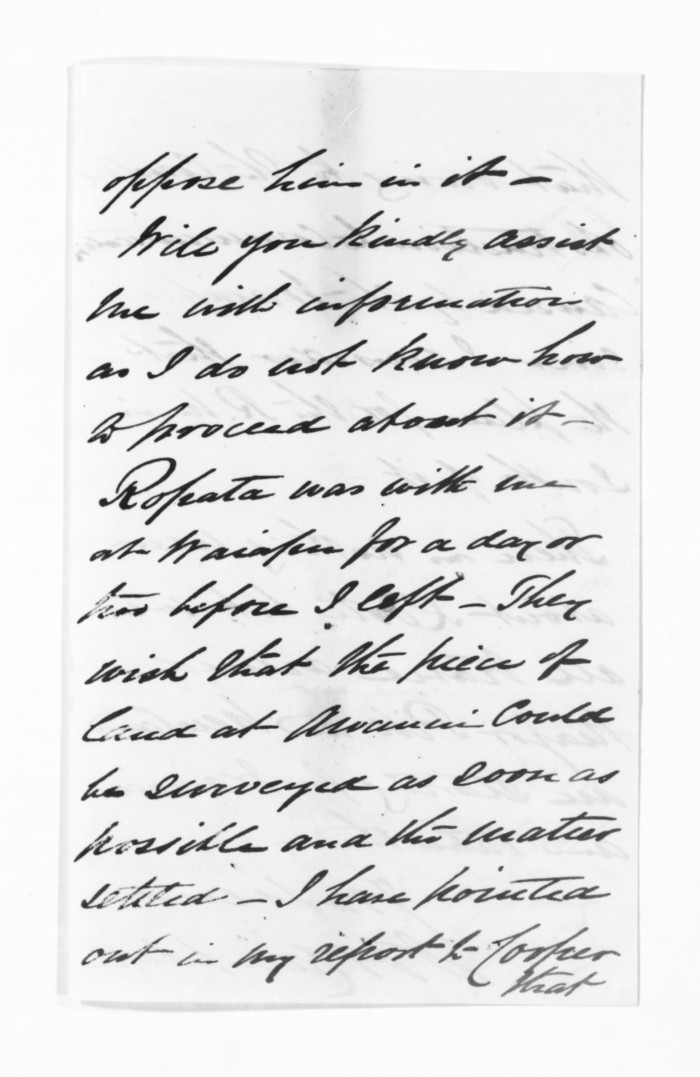 oppose him in it –
Will you kindly assist
me with information
as I do not know how
to proceed about it –
Ropata was with me
at Waiapu for a day or
two before I left – They
wish that the piece of
land at Awanui could
be surveyed as soon as
possible and the matter
settled – I have pointed
out in my report to Cooper
that